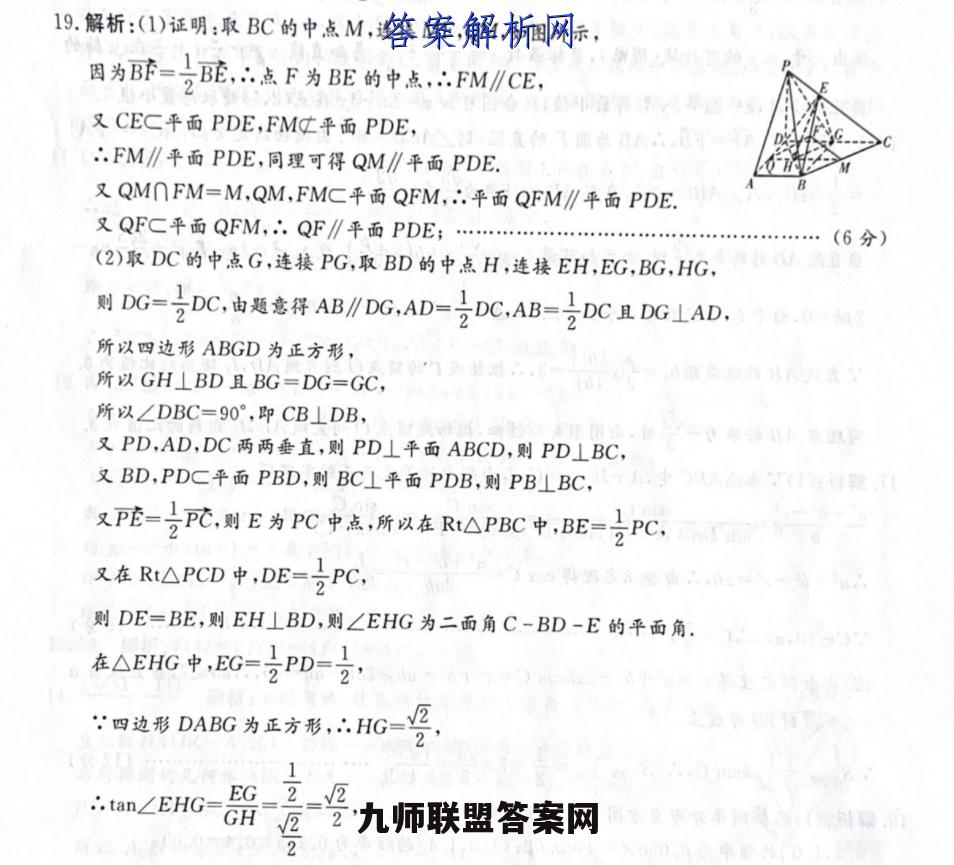 19.解析:(1)证明:取 BC 的中点 M,连 答案解析网 图 示,
因为$\overrightarrow{BF}=\frac{1}{2}\overrightarrow{BE}$,∴点 F 为 BE 的中点,∴FM∥CE,
又 CE⊂平面 PDE,FM⊄平面 PDE,
∴FM∥平面 PDE,同理可得 QM∥平面 PDE.
又 QM∩FM=M,QM,FM⊂平面 QFM,∴平面 QFM∥平面 PDE.
又 QF⊂平面 QFM,∴ QF∥平面 PDE; ………………………………… (6 分)
(2)取 DC 的中点 G,连接 PG,取 BD 的中点 H,连接 EH,EG,BG,HG,
则 DG=$\frac{1}{2}$DC,由题意得 AB∥DG,AD=$\frac{1}{2}$DC,AB=$\frac{1}{2}$DC 且 DG⊥AD,
所以四边形 ABGD 为正方形,
所以 GH⊥BD 且 BG=DG=GC,
所以∠DBC=90°,即 CB⊥DB,
又 PD,AD,DC 两两垂直,则 PD⊥平面 ABCD,则 PD⊥BC,
又 BD,PD⊂平面 PBD,则 BC⊥平面 PDB,则 PB⊥BC,
又$\overrightarrow{PE}=\frac{1}{2}\overrightarrow{PC}$,则 E 为 PC 中点,所以在 Rt△PBC 中,BE=$\frac{1}{2}$PC,
又在 Rt△PCD 中,DE=$\frac{1}{2}$PC,
则 DE=BE,则 EH⊥BD,则∠EHG 为二面角 C-BD-E 的平面角.
在△EHG 中,EG=$\frac{1}{2}$PD=$\frac{1}{2}$,
∵四边形 DABG 为正方形,∴HG=$\frac{\sqrt{2}}{2}$,
∴tan∠EHG=$\frac{EG}{GH}=\frac{\frac{1}{2}}{\frac{\sqrt{2}}{2}}=\frac{\sqrt{2}}{2}$ 九师联盟答案网
P
D
G
C
Q
H
M
A
B